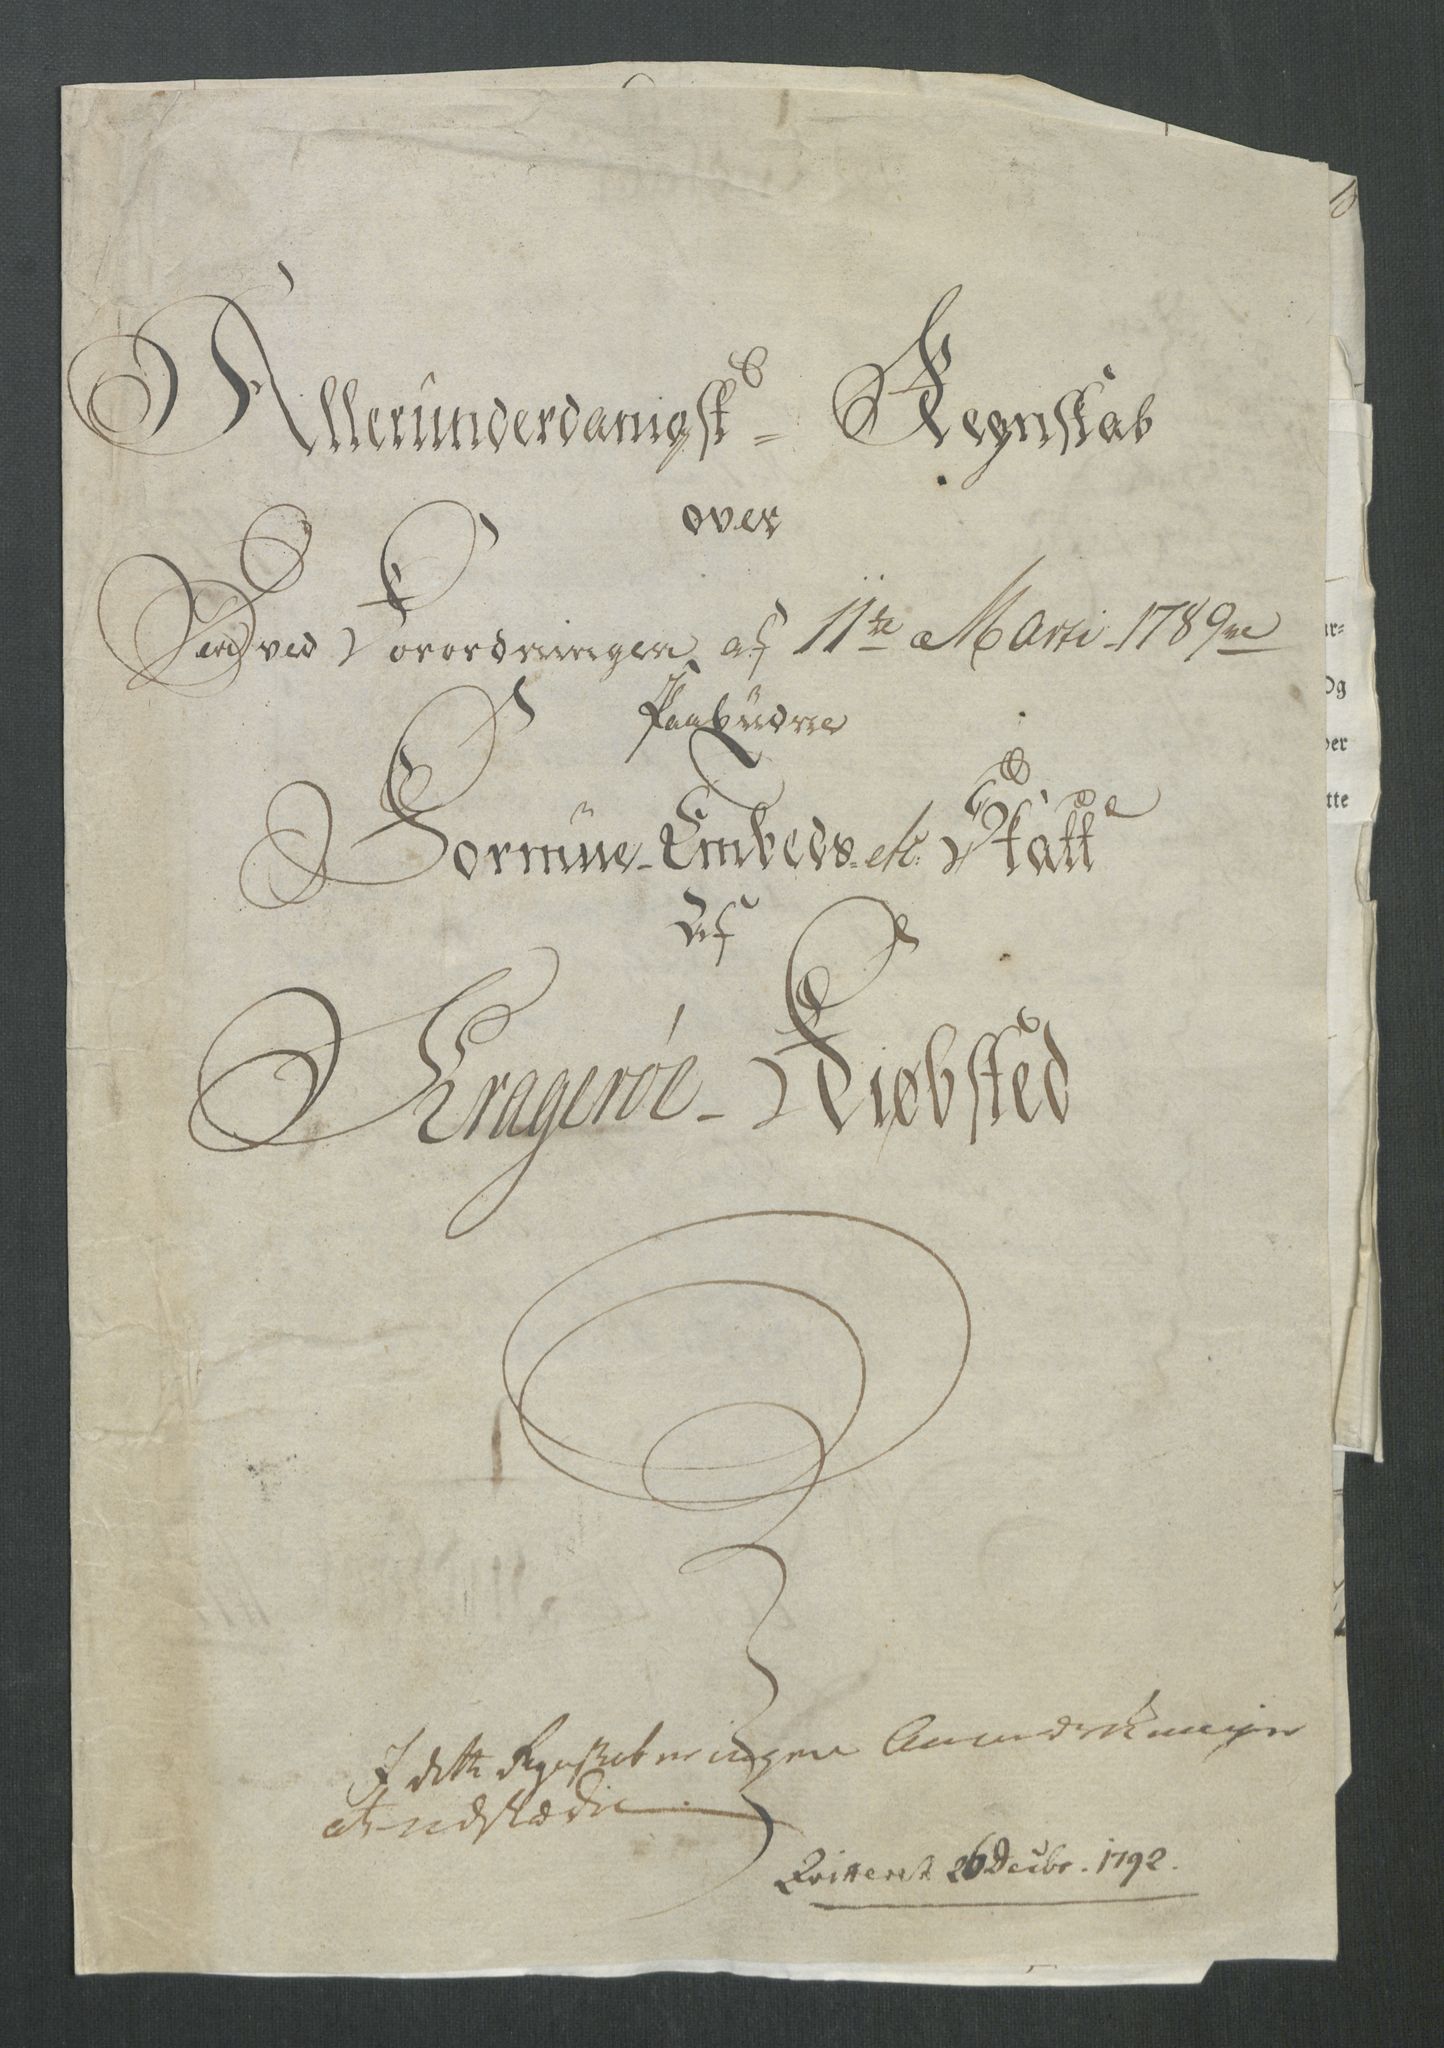 Allerunderdanigst = Regnskab
over
Den ved Forordningen af 11te Marti 1789ve
Paabudne
Formue-Embeds- etc: Skatt
Af
Kragerøe - Kiøbsted
I dette Regnskab er ingen
Qvitteret 26 Decbr. 1792.
10
ar-
Og
ver
tte